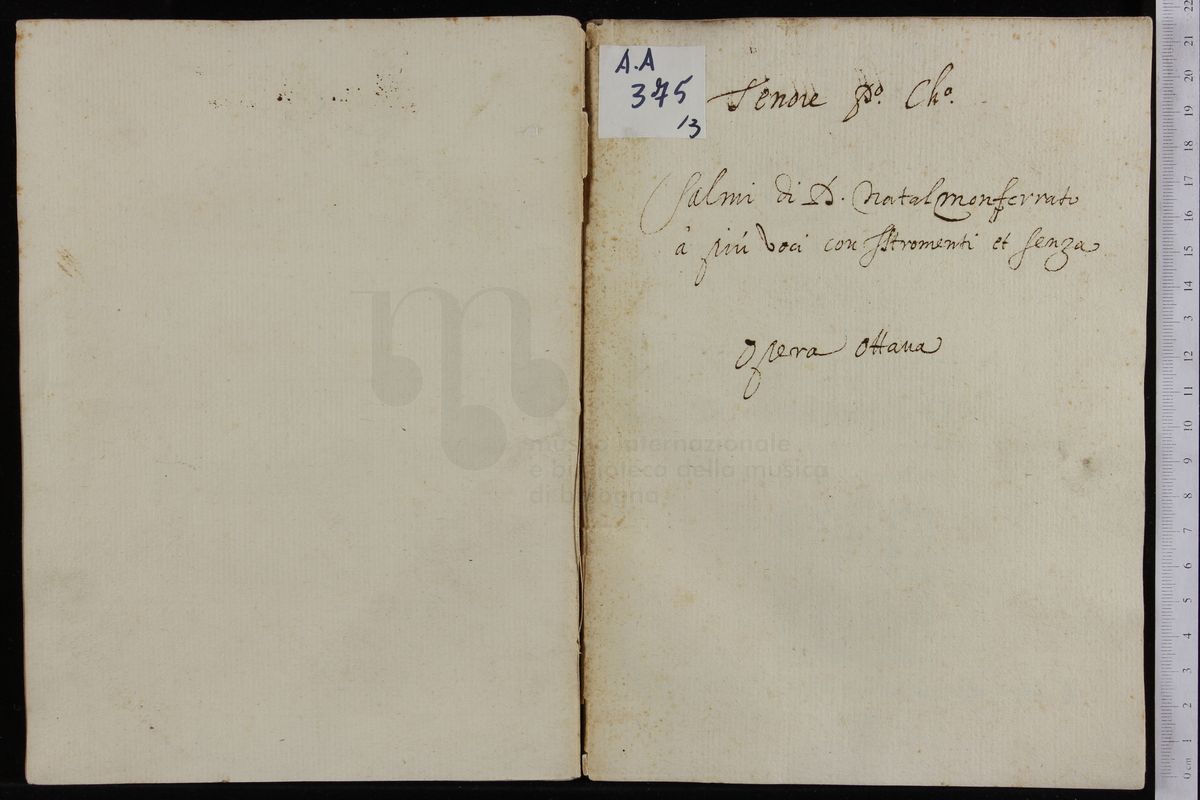 A.A
375
/3
Tenore Po. Cho.
Salmi di D. Natal Monferrato
à più Voci con Stromenti et senza
Opera Ottaua
museo internazionale
e biblioteca della musica
di bologna
22
21
20
19
18
17
16
15
14
3
12
11
10
9
8
7
6
5
4
3
2
1
0 cm